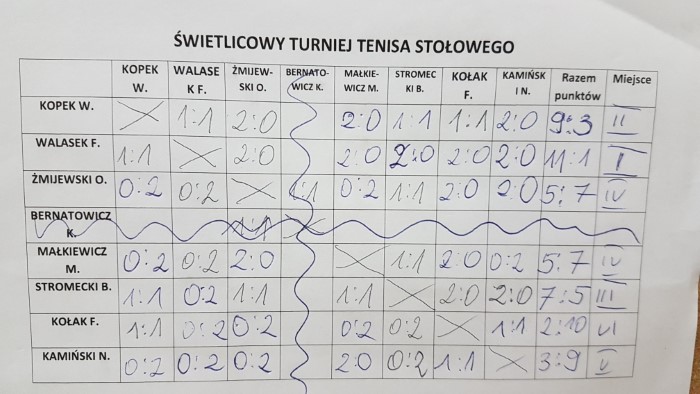 ŚWIETLICOWY TURNIEJ TENISA STOŁOWEGO
KOPEK W. WALASEK F. ŻMIJEW-SKI O. BERNATO-WICZ K. MAŁKIE-WICZ M. STROMECKI B. KOŁAK F. KAMIŃSKI N. Razem punktów Miejsce
KOPEK W. 1:1 2:0 2:0 1:1 1:1 2:0 9:3 II
WALASEK F. 1:1 2:0 2:0 2:0 2:0 2:0 11:1 I
ŻMIJEWSKI O. 0:2 0:2 1:1 0:2 1:1 2:0 2:0 5:7 IV
BERNATOWICZ K. 1:1
MAŁKIEWICZ M. 0:2 0:2 2:0 1:1 2:0 0:2 5:7 IV
STROMECKI B. 1:1 0:2 1:1 1:1 2:0 2:0 7:5 III
KOŁAK F. 1:1 0:2 0:2 0:2 0:2 1:1 2:10 VI
KAMIŃSKI N. 0:2 0:2 0:2 2:0 0:2 1:1 3:9 V